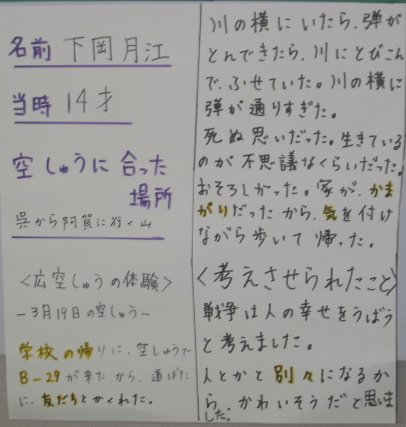 名前 下岡月江
当時 14才
空しゅうに合った
場所
呉から阿賀に行く山
〈広空しゅうの体験〉
－3月19日の空しゅう－
学校の帰りに、空しゅうで
B-29が来たから、道ばた
に、友だちとかくれた。
川の横にいたら、弾が
とんできたら、川にとびこん
で、ふせていた。川の横に
弾が通りすぎた。
死ぬ思いだった。生きている
のが不思議なくらいだった。
おそろしかった。家が、かま
がりだったから、気を付け
ながら歩いて帰った。
〈考えさせられたこと〉
戦争は人の幸せをうばう
と考えました。
人とかと別々になるか
ら、かわいそうだと思いま
した。